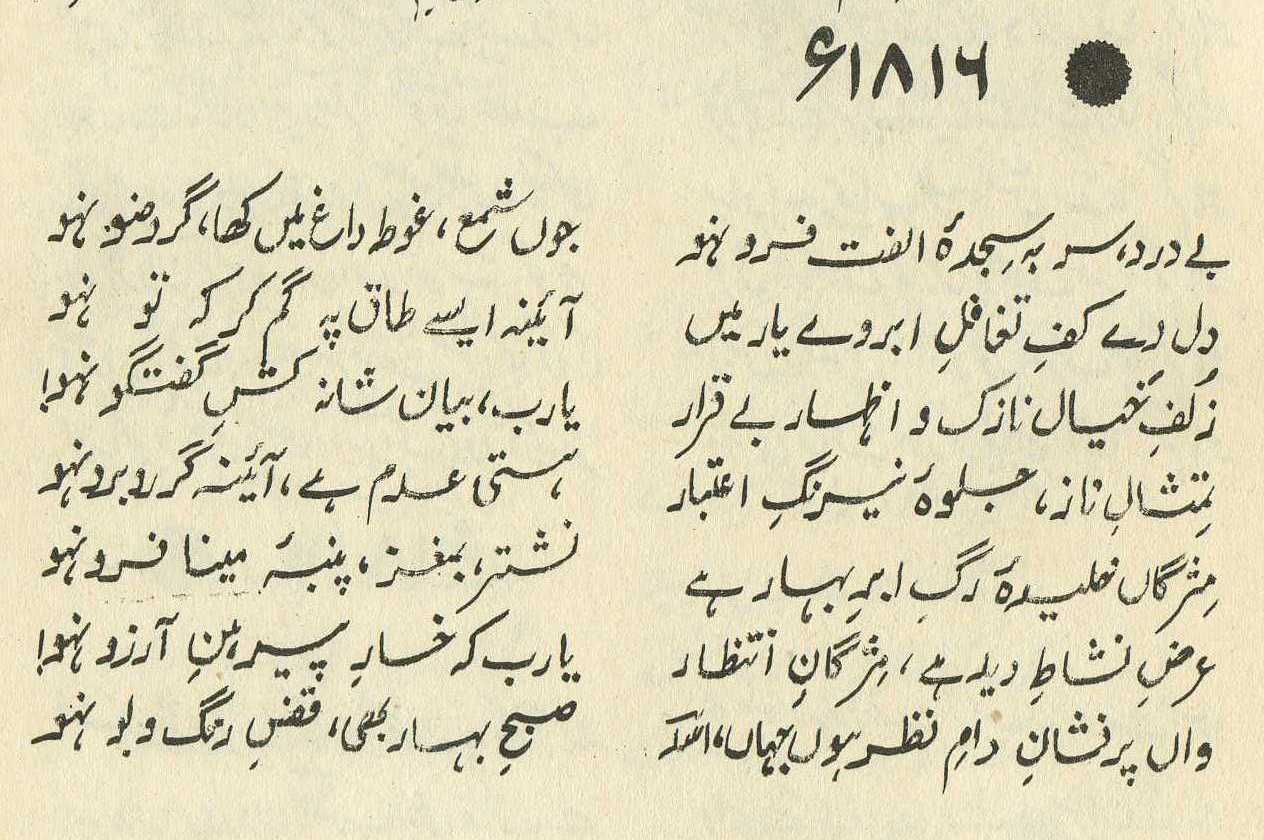 ۱۸۱۶ء
بے درد، سر بہ سجدۂ الفت فرو نہو
جوں شمع، غوطہ داغ میں کھا، گر وضو نہو
دل دے کفِ تغافلِ ابروے یار میں
آئینہ ایسے طاق پہ گم کر کہ تو نہو
زلفِ خیال نازک و اظہار بے قرار
یارب، بیان شانہ کشِ گفتگو نہو!
تمثالِ ناز، جلوۂ نیرنگِ اعتبار
ہستی عدم ہے، آئینہ گر روبرو نہو
مژگاں خلیدۂ رگِ ابرِ بہار ہے
نشتر، بمغز، پنبۂ مینا فرو نہو
عرضِ نشاطِ دید ہے، مژگانِ انتظار
یارب کہ خارِ پیرہنِ آرزو نہو!
واں پرفشانِ دامِ نظر ہوں جہاں، اسدؔ
صبحِ بہار بھی، قفسِ رنگ و بو نہو